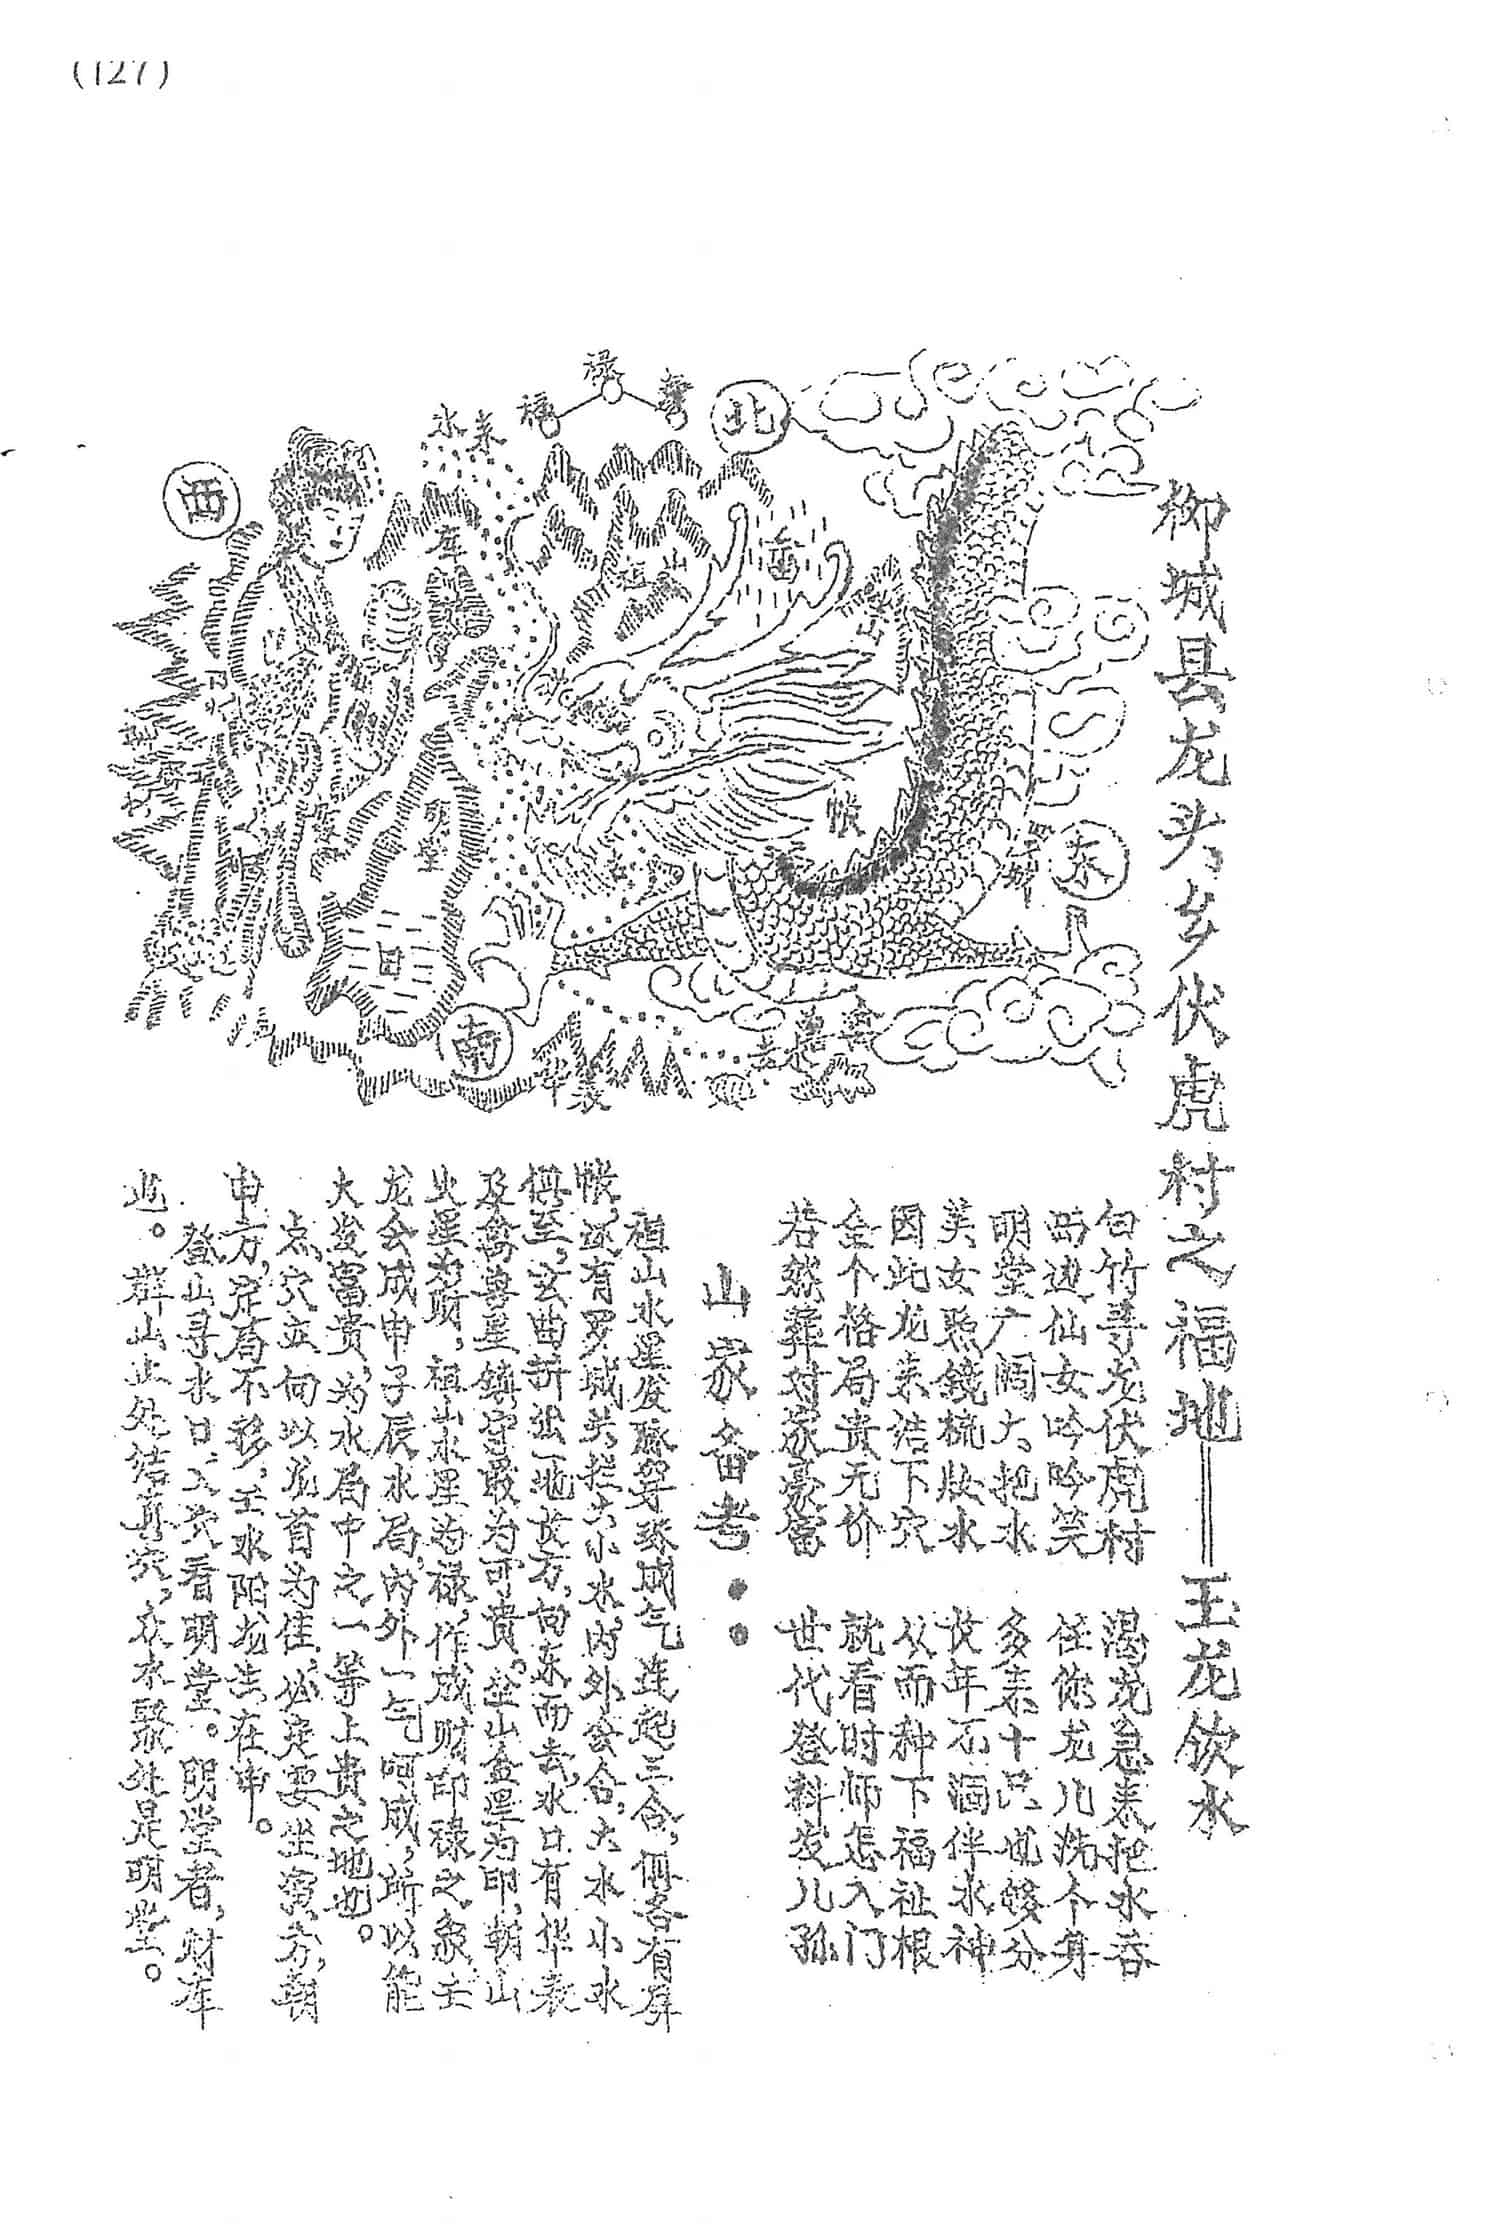 (127)
柳城县龙头乡伏虎村之福地——玉龙饮水
白竹寻龙伏虎村 渴龙急来把水吞
两边仙女吟吟笑 任你龙儿洗个身
明堂广阔大把水 多来十只也够分
美女照镜梳妆水 长年不涸伴水神
因此龙来结下穴 从而种下福祉根
全个格局贵无价 就看时师怎入门
若然葬对家豪富 世代登科发儿孙
山家备考：
祖山水星发脉穿珠成气连起三台，俱各有屏
帐，还有罗城关拦大小水，内外会合，大水小水
俱至，玄曲折出一地长方，向东而去，水口有华表
及禽兽星镇守最为可贵。坐山金星为印，朝山
火星为财，祖山水星为禄，作成财印禄之象，壬
龙会成申子辰水局，内外一气呵成，所以能
大发富贵，为水局中之一等上贵之地也。
点穴立向以龙首为佳，必定要坐寅方，朝
申方，定局不移，壬水阳龙生在申。
登山寻水口，入穴看明堂。明堂者，财库
也。群山止处结真穴，众水聚处是明堂。
北
禄
福
水来
西
库
山
帐
明堂
东
田
南
华表
去
禽